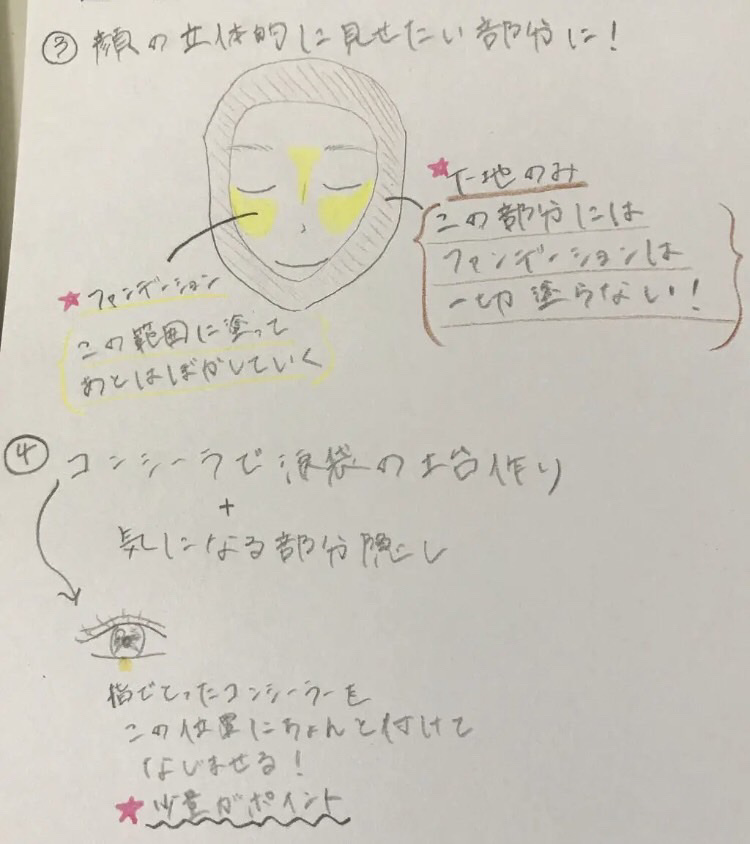 ③ 顔の立体的に見せたい部分に!
★下地のみ
この部分には
ファンデーションは
一切塗らない!
★ファンデーション
この範囲に塗って
あとはぼかしていく
④ コンシーラで涙袋の土台作り
+
気になる部分隠し
指でとったコンシーラーを
この位置にちょんと付けて
なじませる!
★少量がポイント